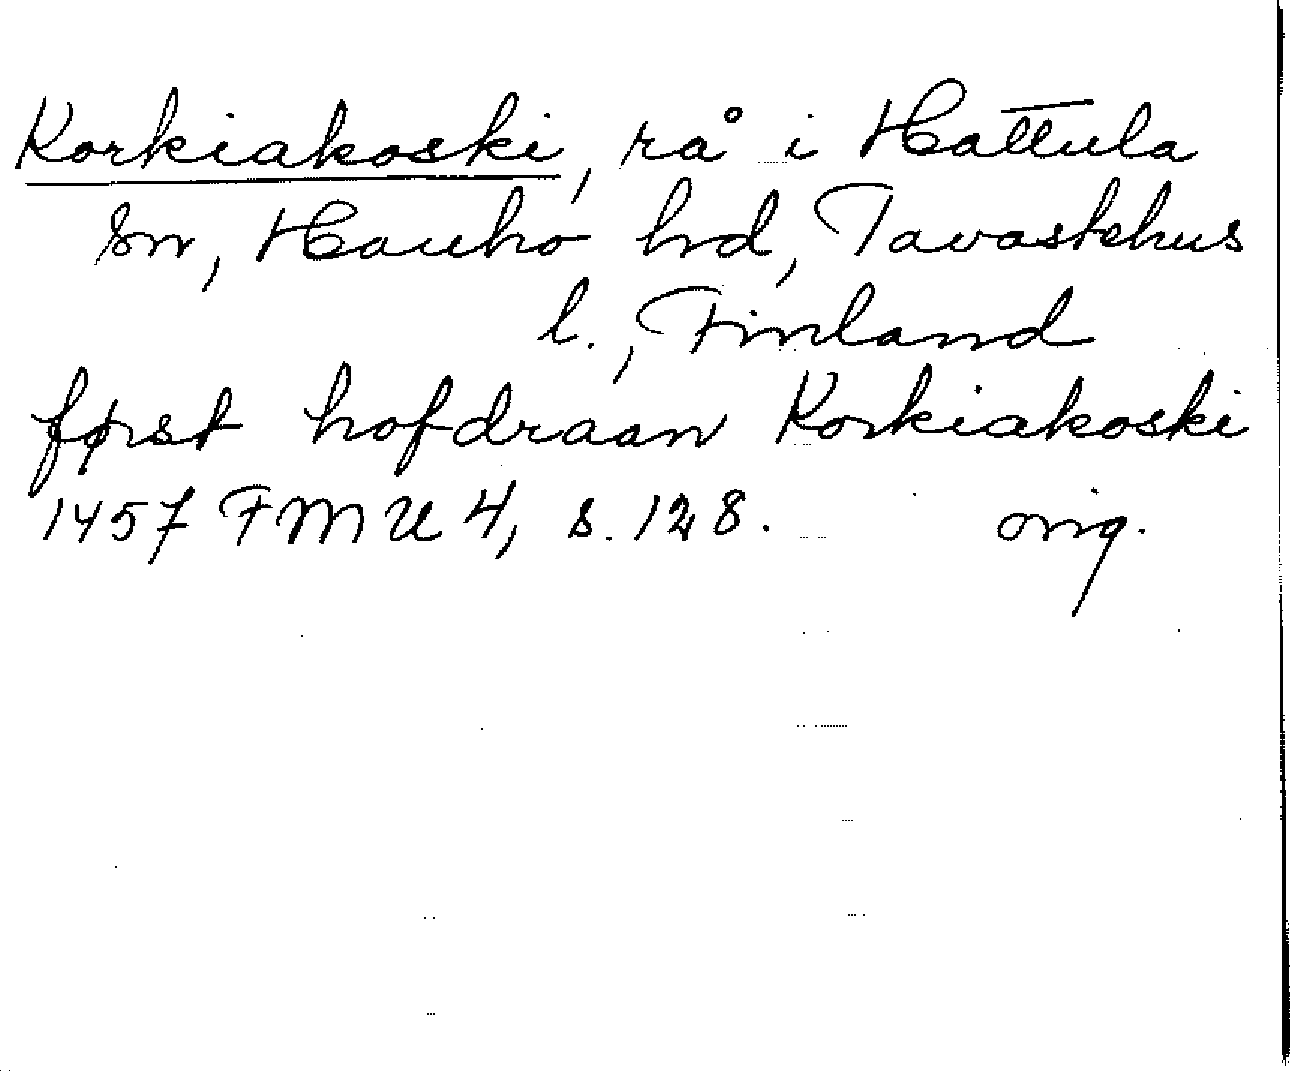 Korkiakoski, rå i Hattula
sn, Hauho hd, Tavastehus
l., Finland
først hofdraan Korkiakoski
1457 FMU 4, s. 128. orig.